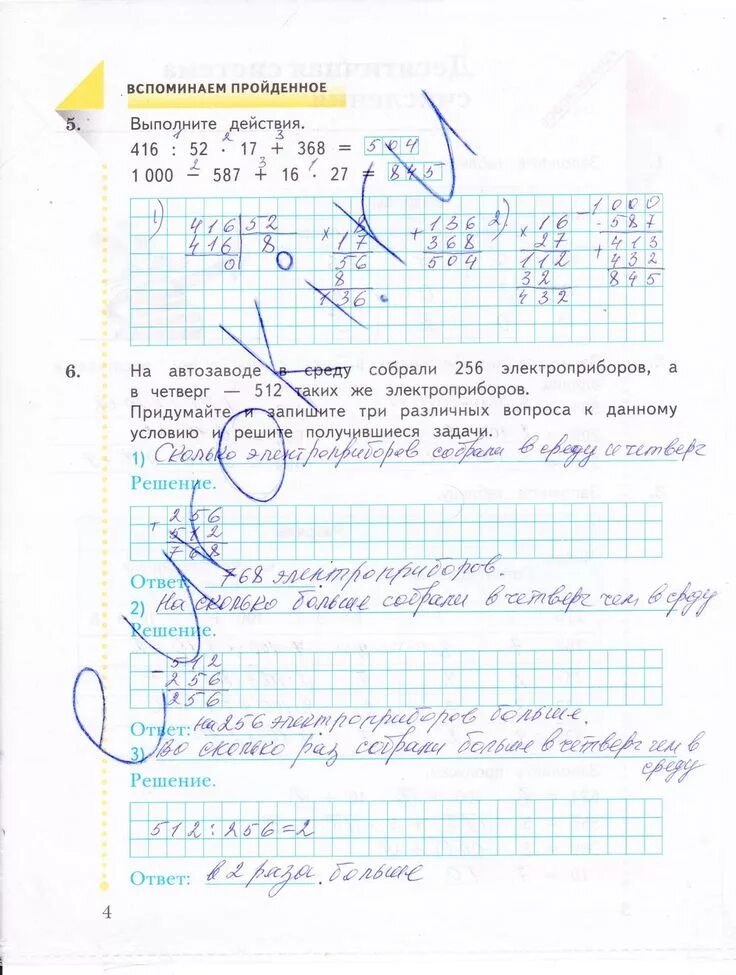 ВСПОМИНАЕМ ПРОЙДЕННОЕ
5. Выполните действия.
1 2 3
416 : 52 · 17 + 368 = 504
2 3 1
1 000 − 587 + 16 · 27 = 845
1) 416 52
416 8
0
8
× 17
56
8
136
+ 136
368
504
2) × 16
27
112
32
432
− 1000
587
+ 413
432
845
6. На автозаводе в среду собрали 256 электроприборов, а
в четверг — 512 таких же электроприборов.
Придумайте и запишите три различных вопроса к данному
условию и решите получившиеся задачи.
1) Сколько электроприборов собрали в среду и четверг
Решение.
+ 256
512
768
Ответ: 768 электроприборов.
2) На сколько больше собрали в четверг чем в среду
Решение.
− 512
256
256
Ответ: на 256 электроприборов больше.
3) Во сколько раз собрали больше в четверг чем в
среду
Решение.
512 : 256 = 2
Ответ: в 2 раза больше
4